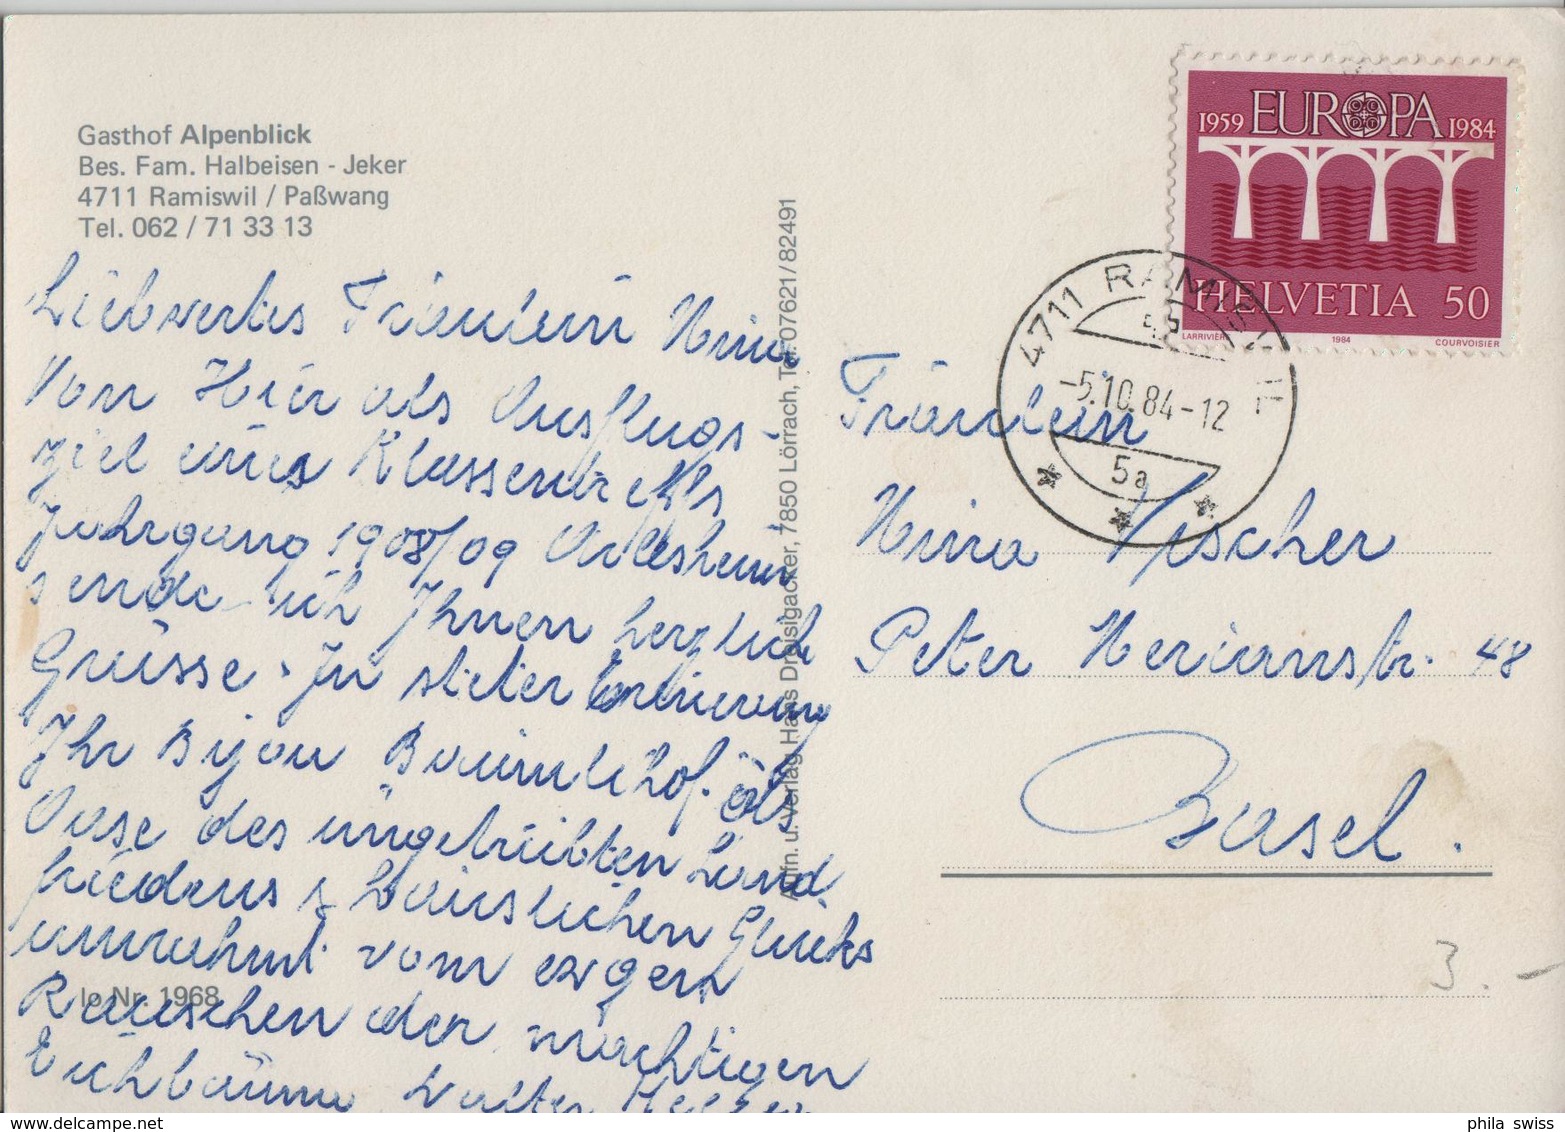 Gasthof Alpenblick
Bes. Fam. Halbeisen - Jeker
4711 Ramiswil / Paßwang
Tel. 062 / 71 33 13
Liebwertes Fräulein Nina
Von Hier als Ausflugs-
ziel eines Klassentreffs
Jahrgang 1908/09 Arlesheim
sende ich Ihnen herzliche
Grüsse. In steter Erinnerung
Ihr Bijou Bäumlihof. als
Oase des ungetrübten Land
friedens & häuslichen Glücks
umrahmt vom ewigen
Rauschen der mächtigen
Eichbäume Walter
lo Nr. 1968
Anfn. u. Verlag Hans Dreisigacker, 7850 Lörrach, Tel. 07621/82491
1959 EUROPA 1984
HELVETIA 50
LARRIVIÈRE 1984 COURVOISIER
4711 RAMISWIL
-5.10.84-12
5a
Fräulein
Nina Vischer
Peter Merianstr. 48
Basel.
3.-
phila swiss